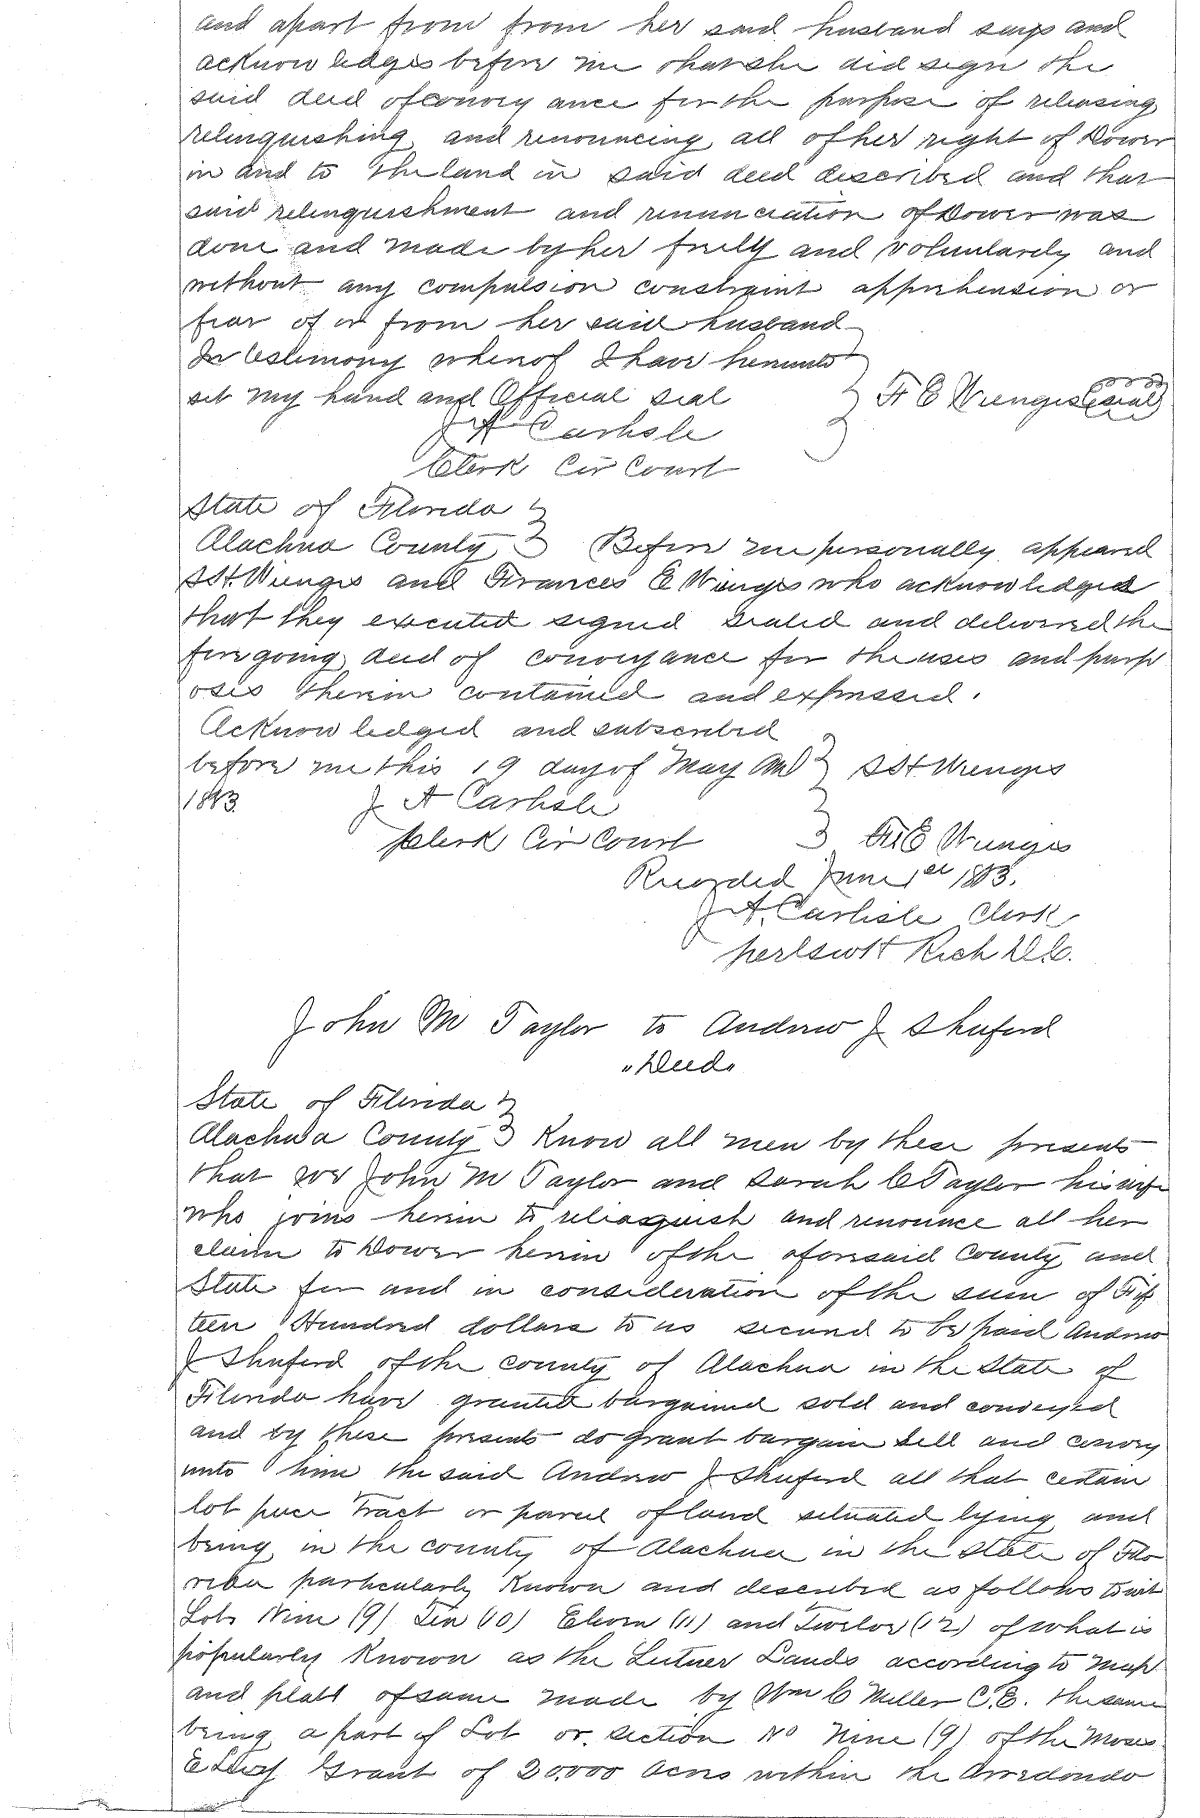 and apart from from her said husband says and
acknowledges before me that she did sign the
said deed of conveyance for the purpose of releasing
relinquishing and renouncing all of her right of Dower
in and to the land in said deed described and that
said relinquishment and renunciation of Dower was
done and made by her freely and voluntarily and
without any compulsion constraint apprehension or
fear of or from her said husband
In testimony whereof I have hereunto
set my hand and Official seal } F E Wienges (seal)
J A Carlisle
Clerk Cir Court
State of Florida }
Alachua County } Before me personally appeared
S S H Wienges and Frances E Wienges who acknowledged
that they executed signed sealed and delivered the
foregoing deed of conveyance for the uses and purp
oses therein contained and expressed.
Acknowledged and subscribed
before me this 19 day of May AD } S S H Wienges
1883. J A Carlisle
Clerk Cir Court } F E Wienges
Recorded June 1st 1883.
J. A. Carlisle Clerk
per Rich D.C.
John M Taylor to Andrew J Shuford
"Deed"
State of Florida }
Alachua County } Know all men by these presents
that we John M Taylor and Sarah C Taylor his wife
who joins herein to relinquish and renounce all her
claim to Dower herein of the aforesaid County and
State for and in consideration of the sum of Fif
teen Hundred dollars to us secured to be paid Andrew
J Shuford of the county of Alachua in the State of
Florida have granted bargained sold and conveyed
and by these presents do grant bargain sell and convey
unto him the said Andrew J Shuford all that certain
lot piece Tract or parcel of land situated lying and
being in the county of Alachua in the State of Flo
rida particularly Known and described as follows to wit
Lots Nine (9) Ten (10) Eleven (11) and Twelve (12) of what is
popularly Known as the Lands according to Map
and platt of same made by Wm C Miller C.E. the same
being a part of Lot or section No Nine (9) of the Moses
E Levy Grant of 20.000 Acres within the Arredondo